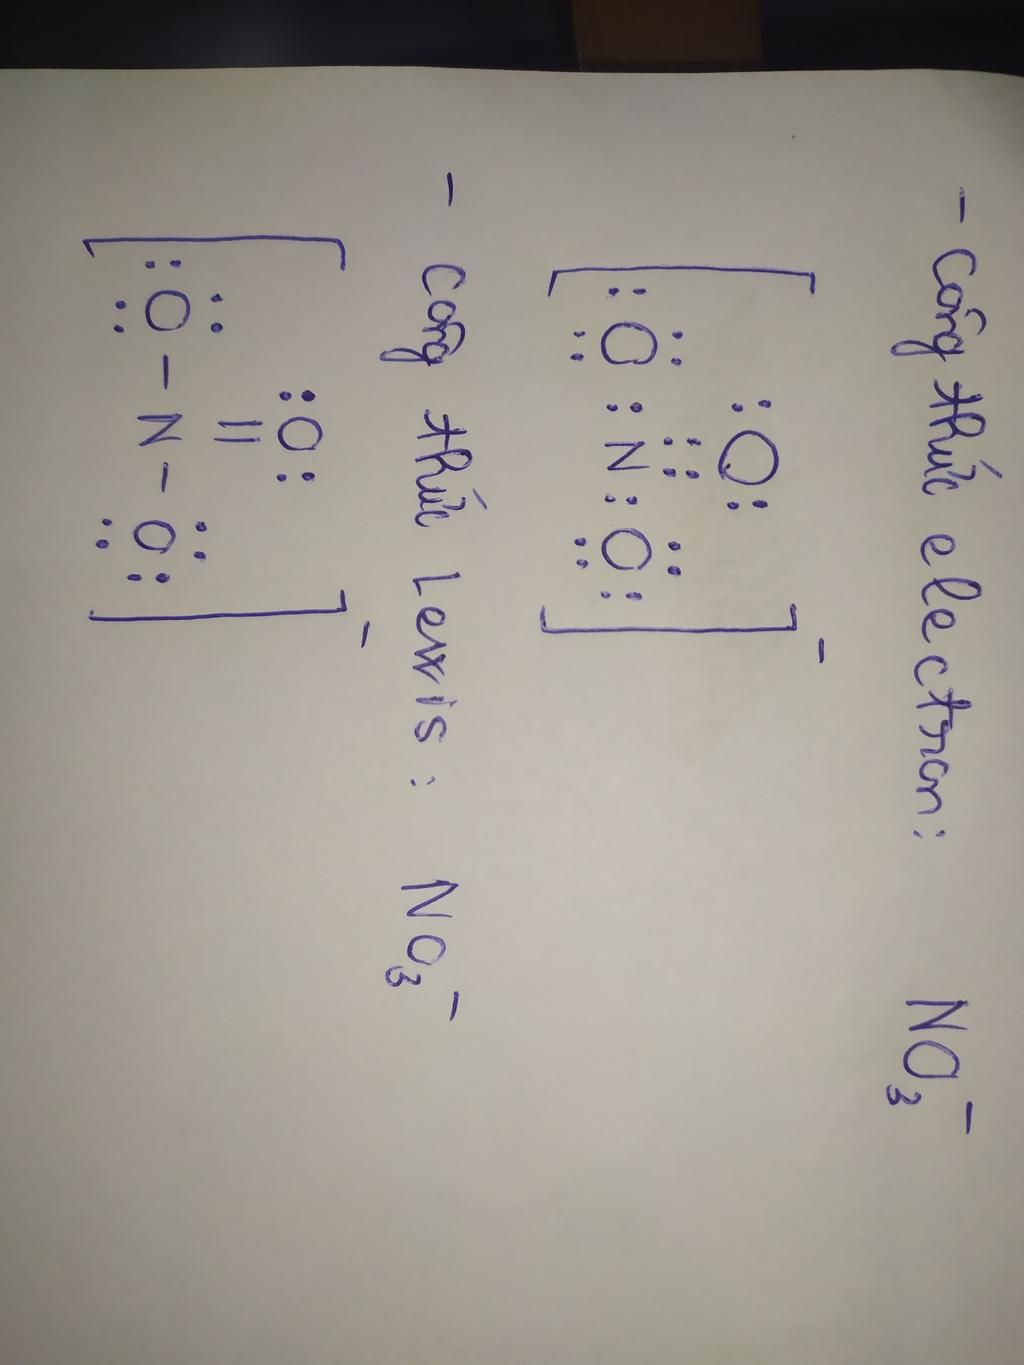 - Công thức electron: NO₃⁻
[ :Ö: N :Ö: ]⁻
- Công thức Lewis: NO₃⁻
O
||
[ O - N - O ]⁻